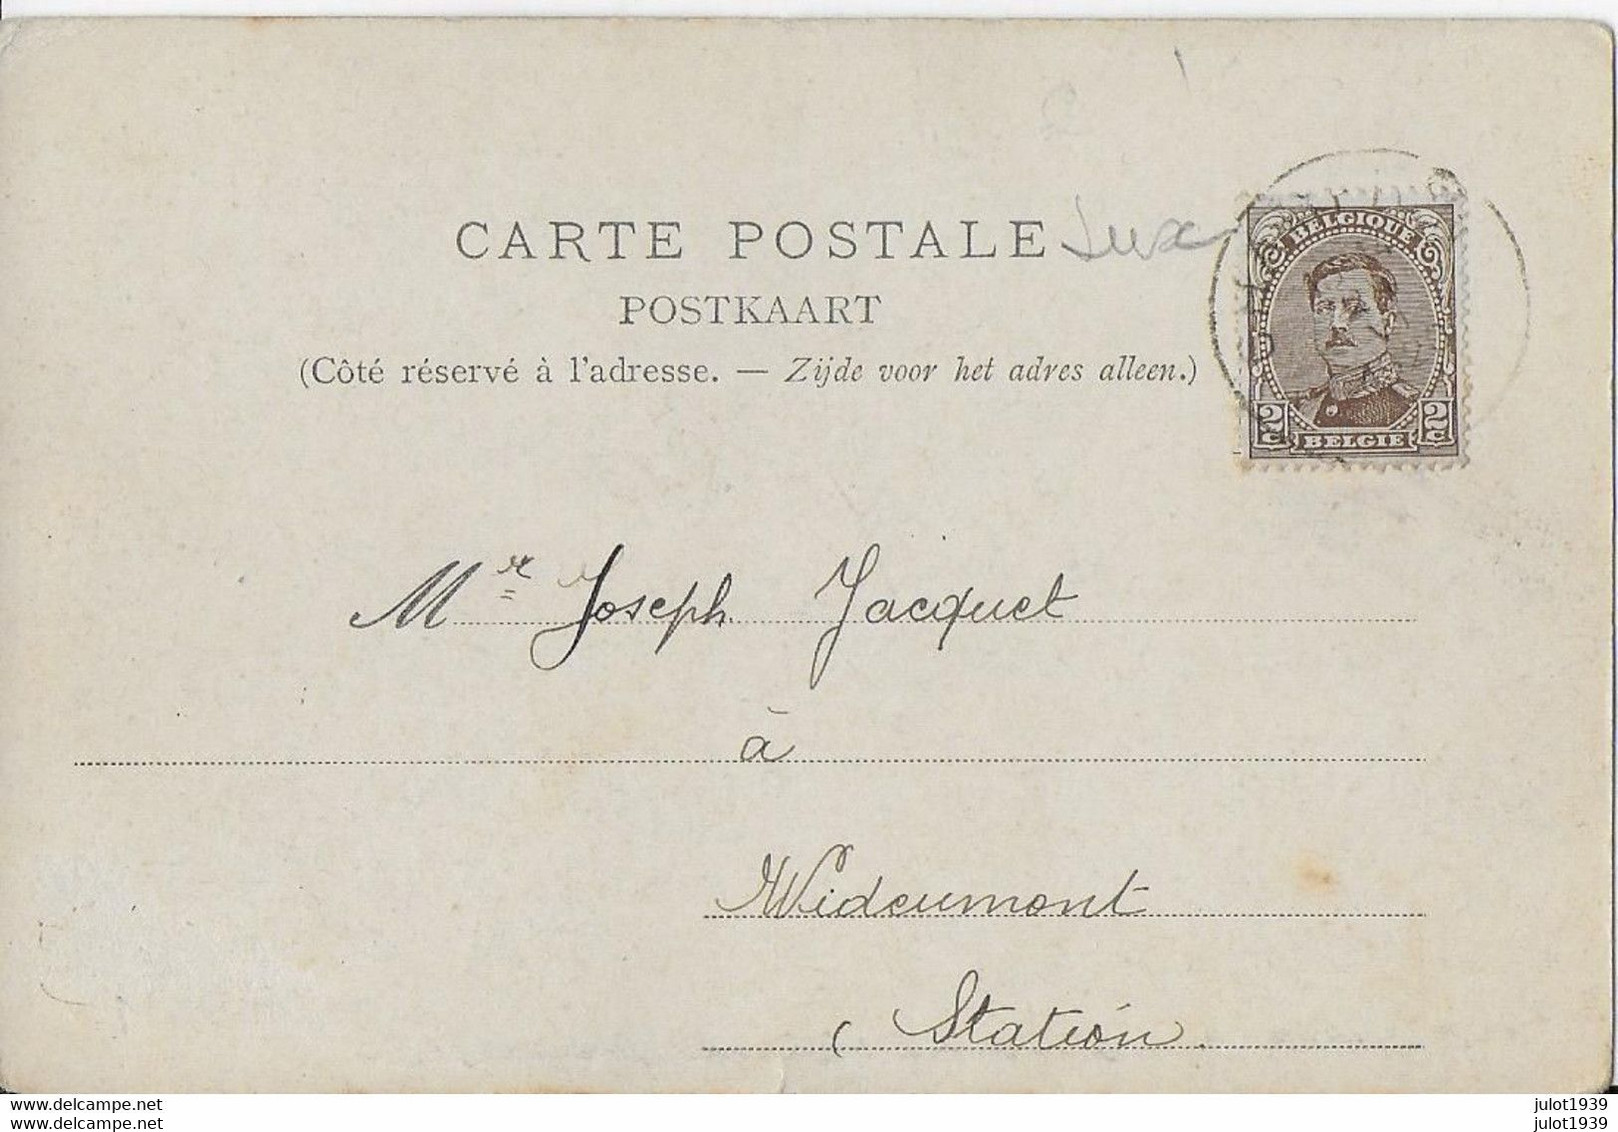 CARTE POSTALE Lux
POSTKAART
(Côté réservé à l'adresse. — Zijde voor het adres alleen.)
BELGIQUE
2c BELGIE 2c
Mr Joseph Jacquet
à
Wideumont
(Station.
www.delcampe.net julot1939
www.delcampe.net julot1939